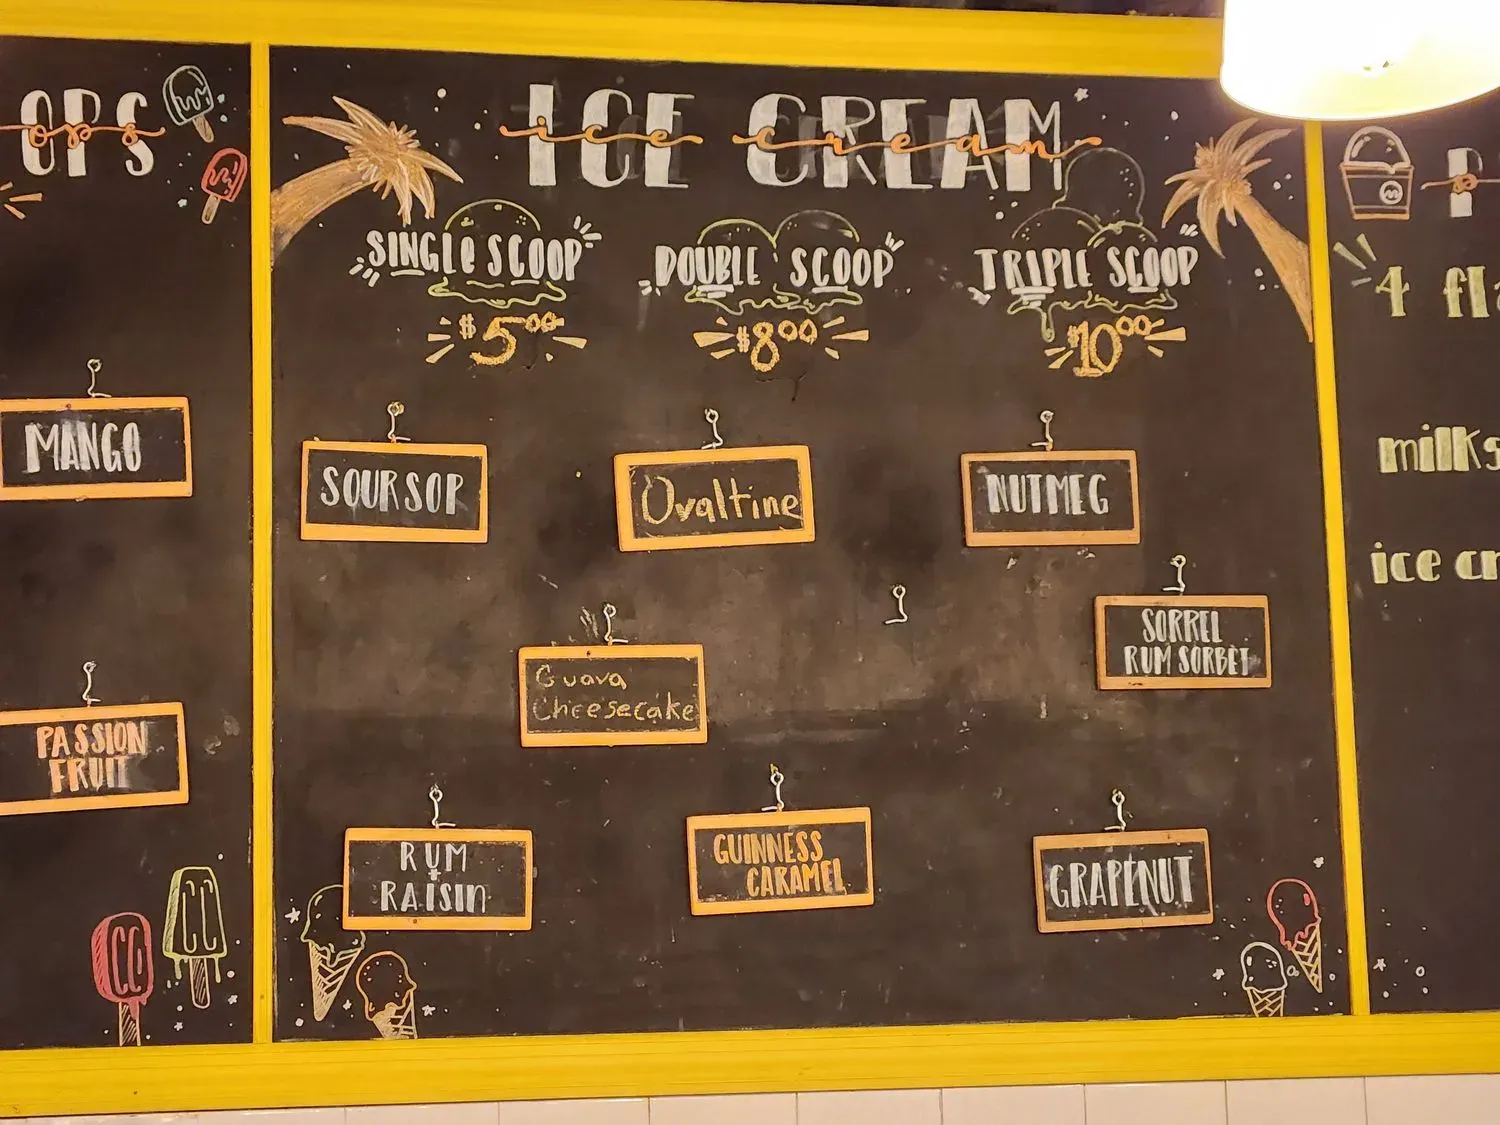 OPS
ops
MANGO
PASSION
FRUIT
ICE CREAM
ice cream
SINGLE SCOOP
$5.00
DOUBLE SCOOP
$8.00
TRIPLE SCOOP
$10.00
SOURSOP
Ovaltine
NUTMEG
Guava
Cheesecake
SORREL
RUM SORBET
RUM
+
RAISIN
GUINNESS
CARAMEL
GRAPENUT
P
4 fla
milks
ice cr